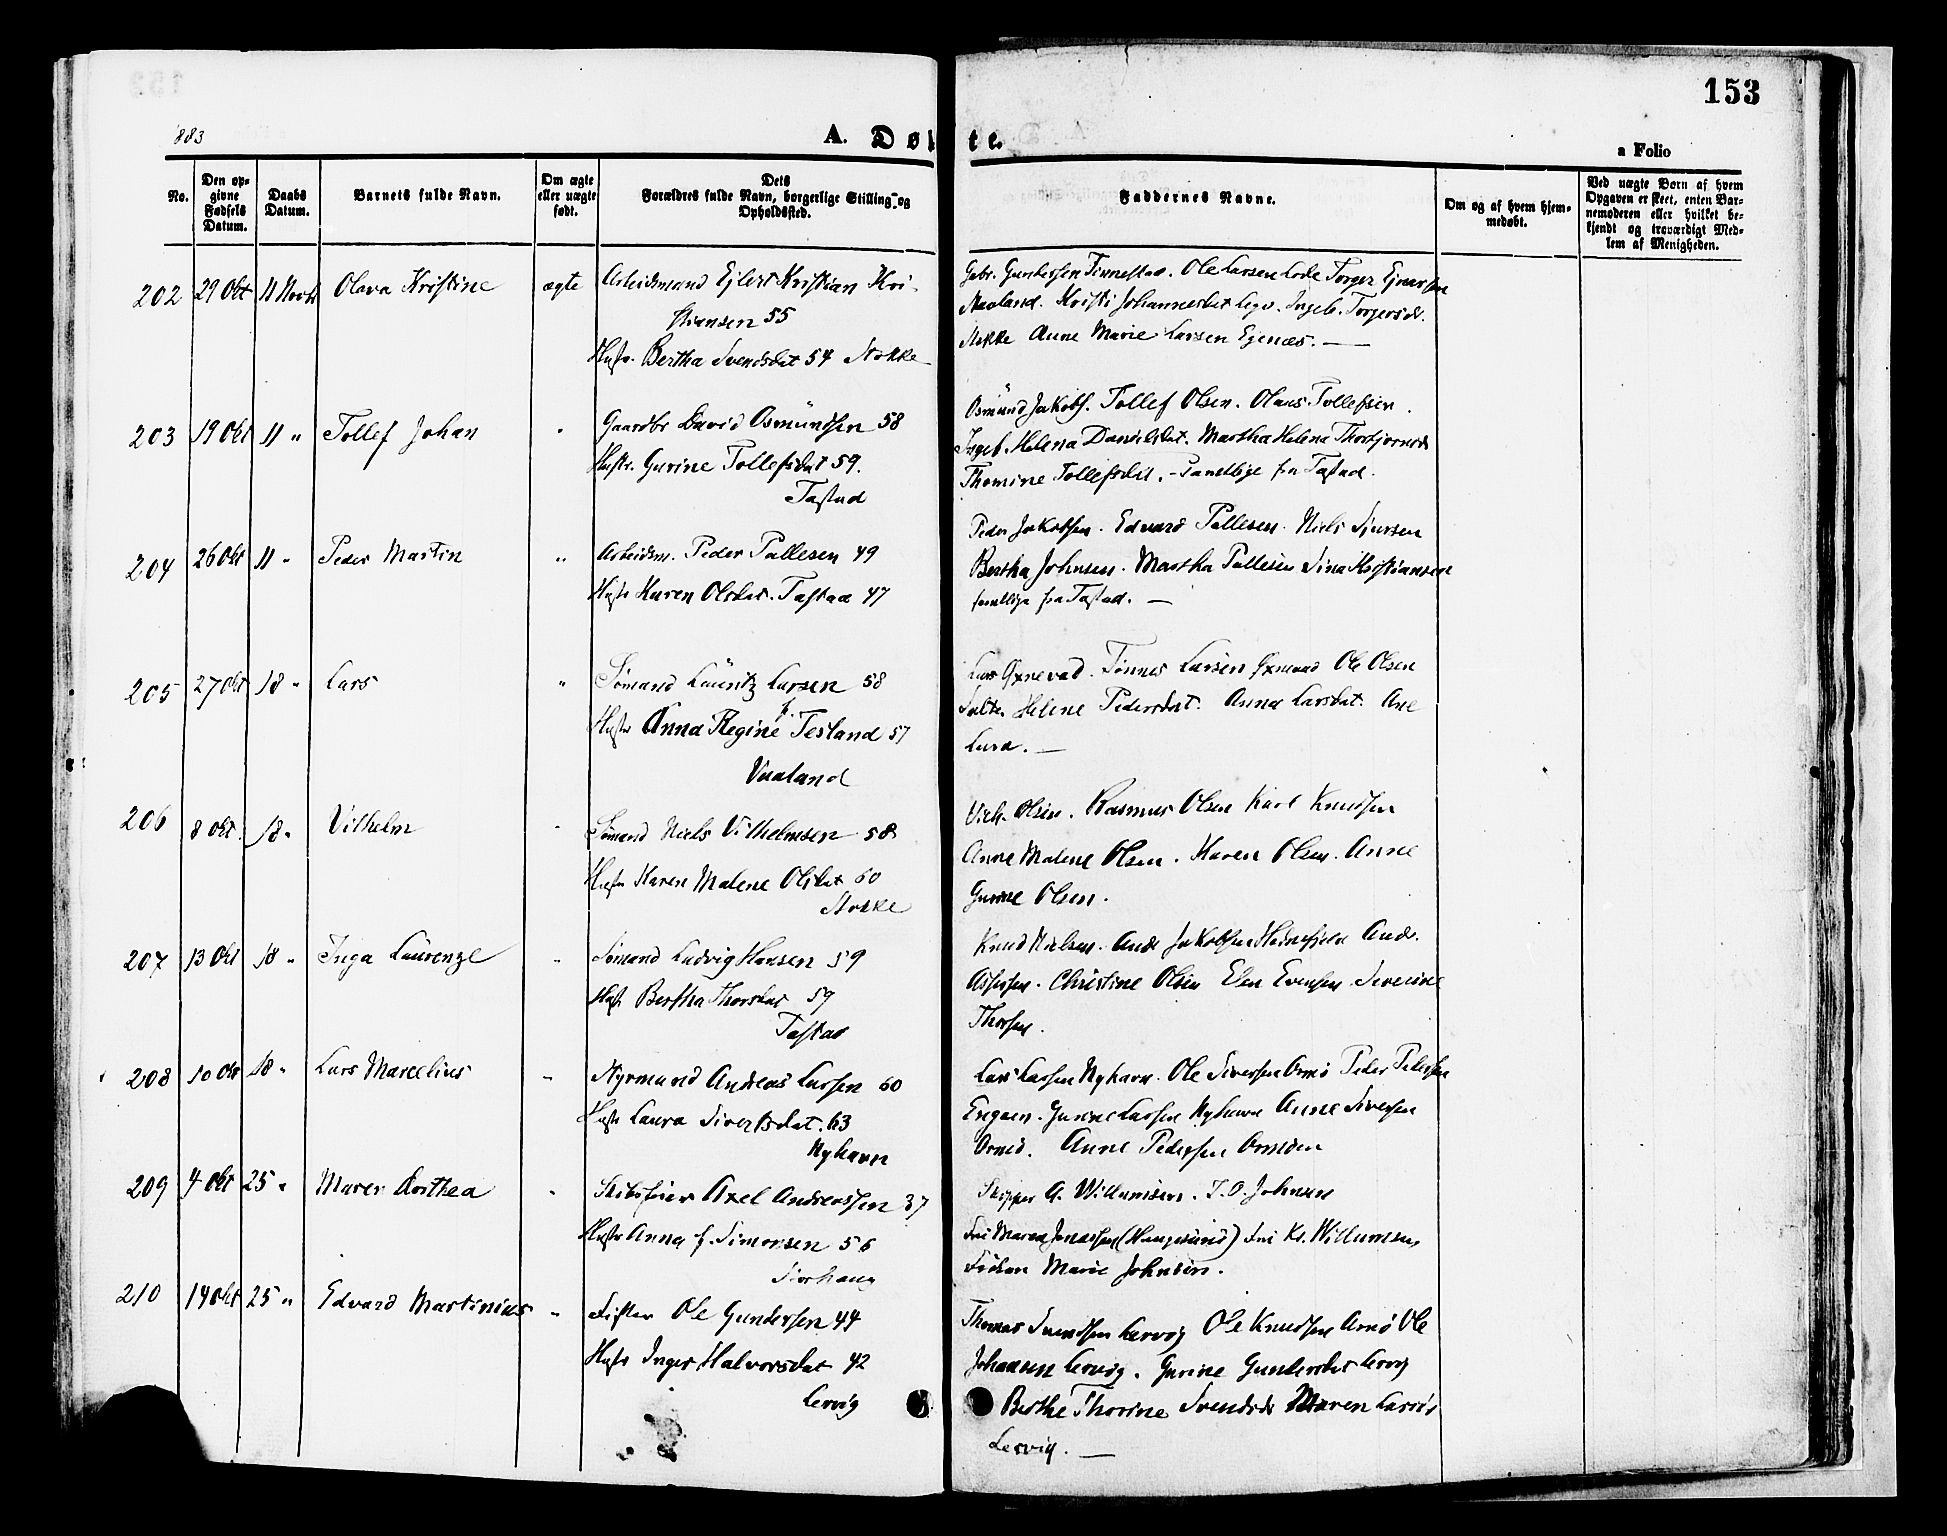 153
1883
A. Døbte.
a Folio
No.
Den opgivne Fødsels Datum.
Daabs Datum.
Barnets fulde Navn.
Om ægte eller uægte født.
Dets Forældres fulde Navn, borgerlige Stilling og Opholdssted.
Faddernes Navne.
Om og af hvem hjemmedøbt.
Ved uægte Born af hvem Opgaven er skeet, enten Barnemoderen eller hvilket bekjendt og troværdigt Medlem af Menigheden.
202 29 Okt 11 Novb Olava Kristine ægte Arbeidsmand Ejlert Kristian Kri-
stiansen 55
Hustr. Bertha Svendsdat 54 Stokke
Gabr. Gundersen Tinnestad. Ole Larsen Lode Torger Ejnarsen
Kristi Johannesdat Ingeb. Torgersdt.
Stokke Anne Marie Larsen Egenæs. —
203 19 Okt 11 " Tollef Johan " Gaardbr David Osmundsen 58
Hustr. Gurine Tollefsdat 59.
Tastad
Osmund Jakobs. Tollef Olsen. Olaus Tollefsen.
Ingeb. Helena Danielsdat. Martha Helena Thorbjørnsd
Thomine Tollefsdat. - Samtlige fra Tastad.
204 26 Okt 11 " Peder Martin " Arbeidsm. Peder Pallesen 49
Hustr Karen Olsdat. Tastad 47
Peder Jakobsen. Edvard Pallesen. Niels Sjursen
Bertha Johnsen. Martha Pallesen Sina Kristiansen
samtlige fra Tastad. —
205 27 Okt 18 " Lars " Sømand Lauritz Larsen 58
Hustr Anna Regine f. Tesland 57
Vaaland
Lars Oxnevad. Tønnes Larsen Ole Olsen
Helene Pedersdat. Anna Larsdat. Ane
Lura. —
206 8 Okt. 18 " Vilhelm " Sømand Niels Vilhelmsen 58
Hustr Karen Malene Olsdat 60
Stokke
Vilh. Olsen. Rasmus Olsen Karl Knudsen
Anne Malene Olsen. Karen Olsen. Anne
Gurine Olsen.
207 13 Okt 18 " Inga Laurenze " Sømand Ludvig Hansen 59
Hustr Bertha Thorsdat 59
Tastad
Knud Nielsen. Andr Jakobsen Andr.
Christine Olsen Elen Evensen Severine
Thorsen.
208 10 Okt 18 " Lars Marcelius " Styrmand Andreas Larsen 60
Hustr Laura Sivertsdat. 63
Nyhavn
Lars Larsen Nyhavn. Ole Siversen Ormø Peder Pedersen
Engøen. Gurine Larsen Nyhavn Anne Siversen
Ormø. Anne Pedersen
209 4 Okt 25 " Maren Dorthea " Axel Andreassen 37
Hustr Anna f. Simonsen 56
Storhaug
Skipper A. Willumsen. T. O. Johnsen
Fru Maren Jonassen (Haugesund) Fru Kr. Willumsen,
Frøken Marie Johnsen.
210 14 Okt 25 " Edvard Martinius " Fisker Ole Gundersen 44
Hustr Inger Halvorsdat 42
Lervig
Thomas Svendsen Lervig Ole Knudsen Ole
Johansen Lervig. Gurine Gundersdat Lervig
Berthe Thorine Svendsdt Maren
Lervig. —